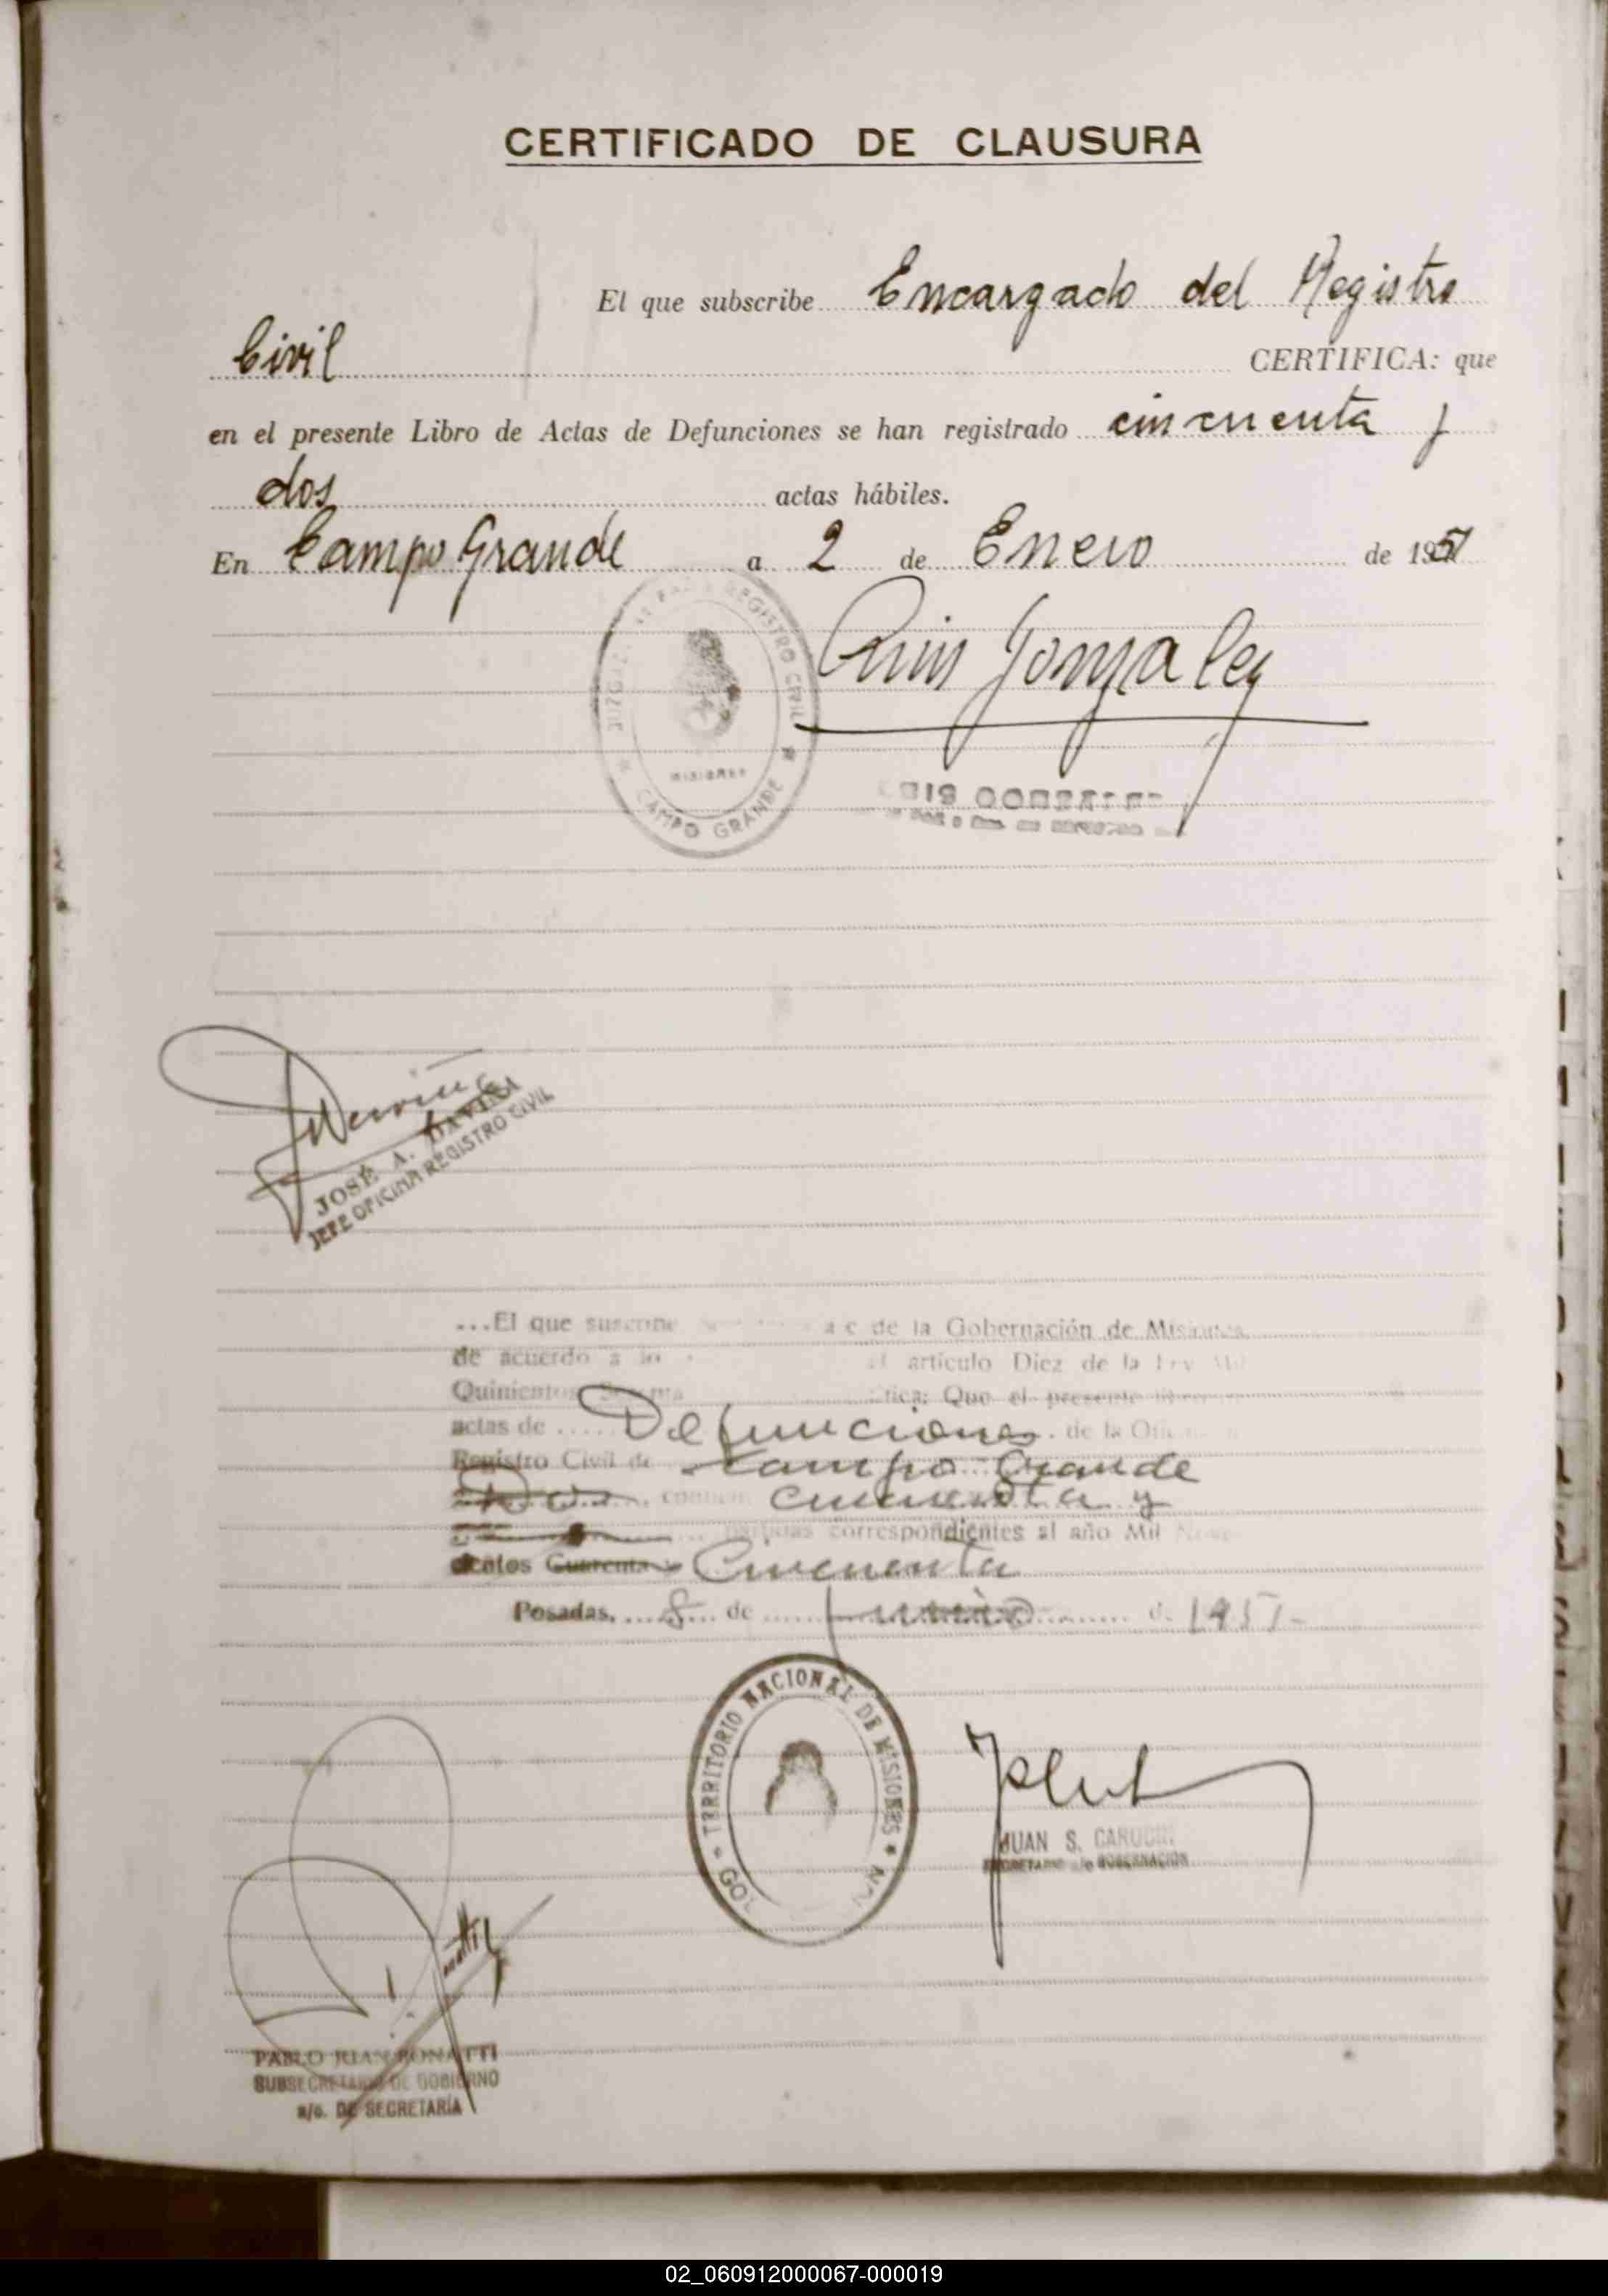 CERTIFICADO DE CLAUSURA
El que subscribe Encargado del Registro
Civil CERTIFICA: que
en el presente Libro de Actas de Defunciones se han registrado cincuenta y
dos actas hábiles.
En Campo Grande a 2 de Enero de 1951
REGISTRO CIVIL
MISIONES
CAMPO GRANDE
Luis Gonzalez
JOSÉ A. DAVIÑA
JEFE OFICINA REGISTRO CIVIL
...El que suscribe a c de la Gobernación de Misiones,
de acuerdo a lo artículo Diez de la Ley Mil
Quinientos Que el presente
actas de ..... Defunciones de la
Registro Civil de Campo Grande
cincuenta y
Dos
correspondientes al año Mil
cientos Cuarenta Cincuenta
Posadas, ....8.... de ..... Junio ..... de 1951-
TERRITORIO NACIONAL DE MISIONES
JUAN S.
SECRETARIO a/c GOBERNACIÓN
PABLO JUAN BONATTI
SUBSECRETARIO DE GOBIERNO
a/c. DE SECRETARÍA
02_060912000067-000019